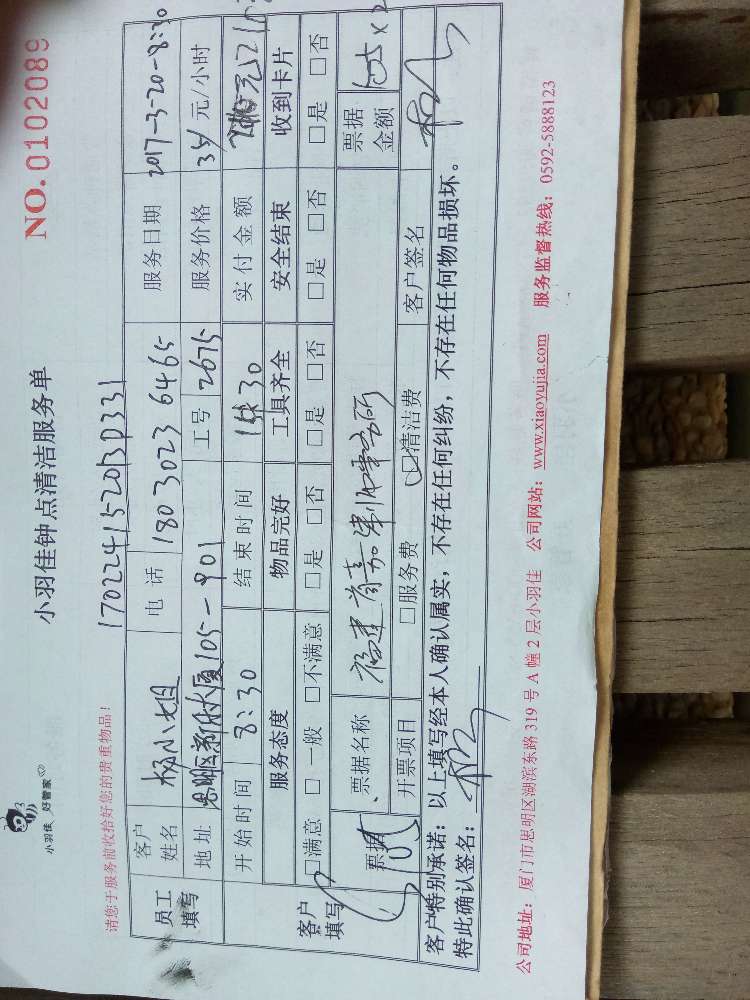 小羽佳 好管家
小羽佳钟点清洁服务单
NO.0102089
请您于服务前收拾好您的贵重物品！
170224152013D331
员工填写
客户姓名 杨小姐 电话 18030236465 服务日期 2017-3-20-8:30
地址 思明区新林大厦105-901 工号 2675 服务价格 35/ 元/小时
开始时间 8:30 结束时间 15:30 实付金额
客户填写
服务态度 物品完好 工具齐全 安全结束 收到卡片
□满意 □一般 □不满意 □是 □否 □是 □否 □是 □否 □是 □否
票据 票据名称 福建首嘉律师事务所 票据金额 105×2
开票项目 □服务费 □清洁费 客户签名
客户特别承诺：以上填写经本人确认属实，不存在任何纠纷，不存在任何物品损坏。
特此确认签名：
公司地址：厦门市思明区湖滨东路319号A幢2层小羽佳 公司网站：www.xiaoyujia.com 服务监督热线：0592-5888123